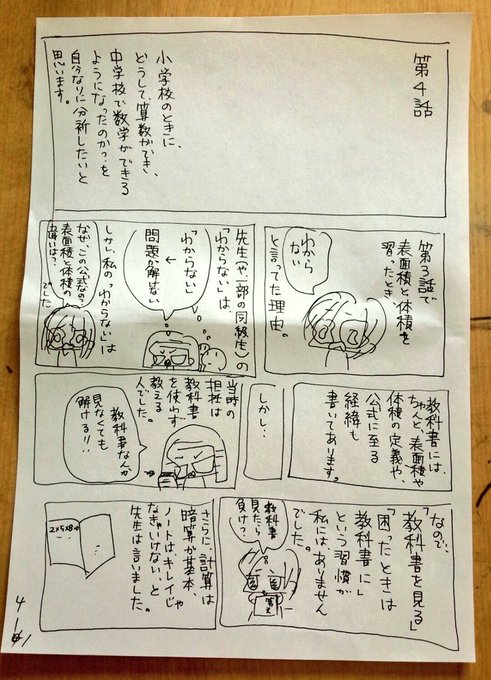 第4話
小学校のときに、
どうして、算数ができ、
中学校で数学ができる
ようになったのか?を
自分なりに分析したいと
思います。
第3話で
表面積と体積を
習ったとき
わから
ない
と言ってた理由。
先生(や一部の同級生)の
「わからない」は、
「わからない」
↓
問題が解けない
しかし、私の「わからない」は
なぜ、この公式なの?
表面積と体積の
違いは?
でした
教科書には
ちゃんと、表面積や
体積の定義や、
公式に至る
経緯も
書いてあります。
しかし…
当時の
担任は
教科書
を使わず
教える
人でした。
教科書なんか
見なくても
解ける!!
なので、
「教科書を見る」
「困ったときは
教科書に」
という習慣が
私にはありません
でした。
教科書
見たら
負け?
さらに、計算は
暗算が基本
ノートは、キレイじゃ
なきゃいけない、と
先生は言いました。
2×5×8=